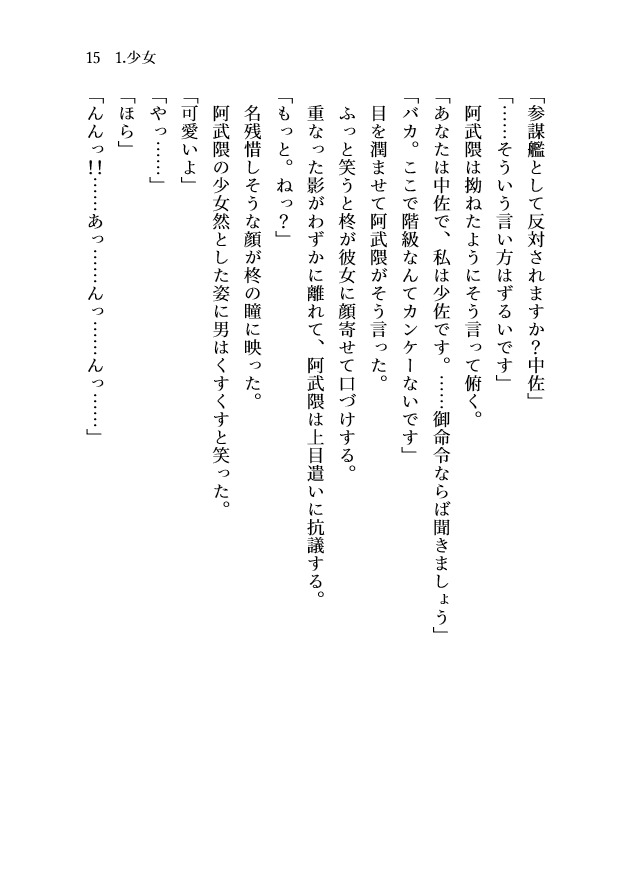 15 1.少女
「参謀艦として反対されますか？中佐」
「……そういう言い方はずるいです」
阿武隈は拗ねたようにそう言って俯く。
「あなたは中佐で、私は少佐です。……御命令ならば聞きましょう」
「バカ。ここで階級なんてカンケーないです」
目を潤ませて阿武隈がそう言った。
ふっと笑うと柊が彼女に顔寄せて口づけする。
重なった影がわずかに離れて、阿武隈は上目遣いに抗議する。
「もっと。ねっ？」
名残惜しそうな顔が柊の瞳に映った。
阿武隈の少女然とした姿に男はくすくすと笑った。
「可愛いよ」
「やっ……」
「ほら」
「んんっ!!……あっ……んっ……んっ……」